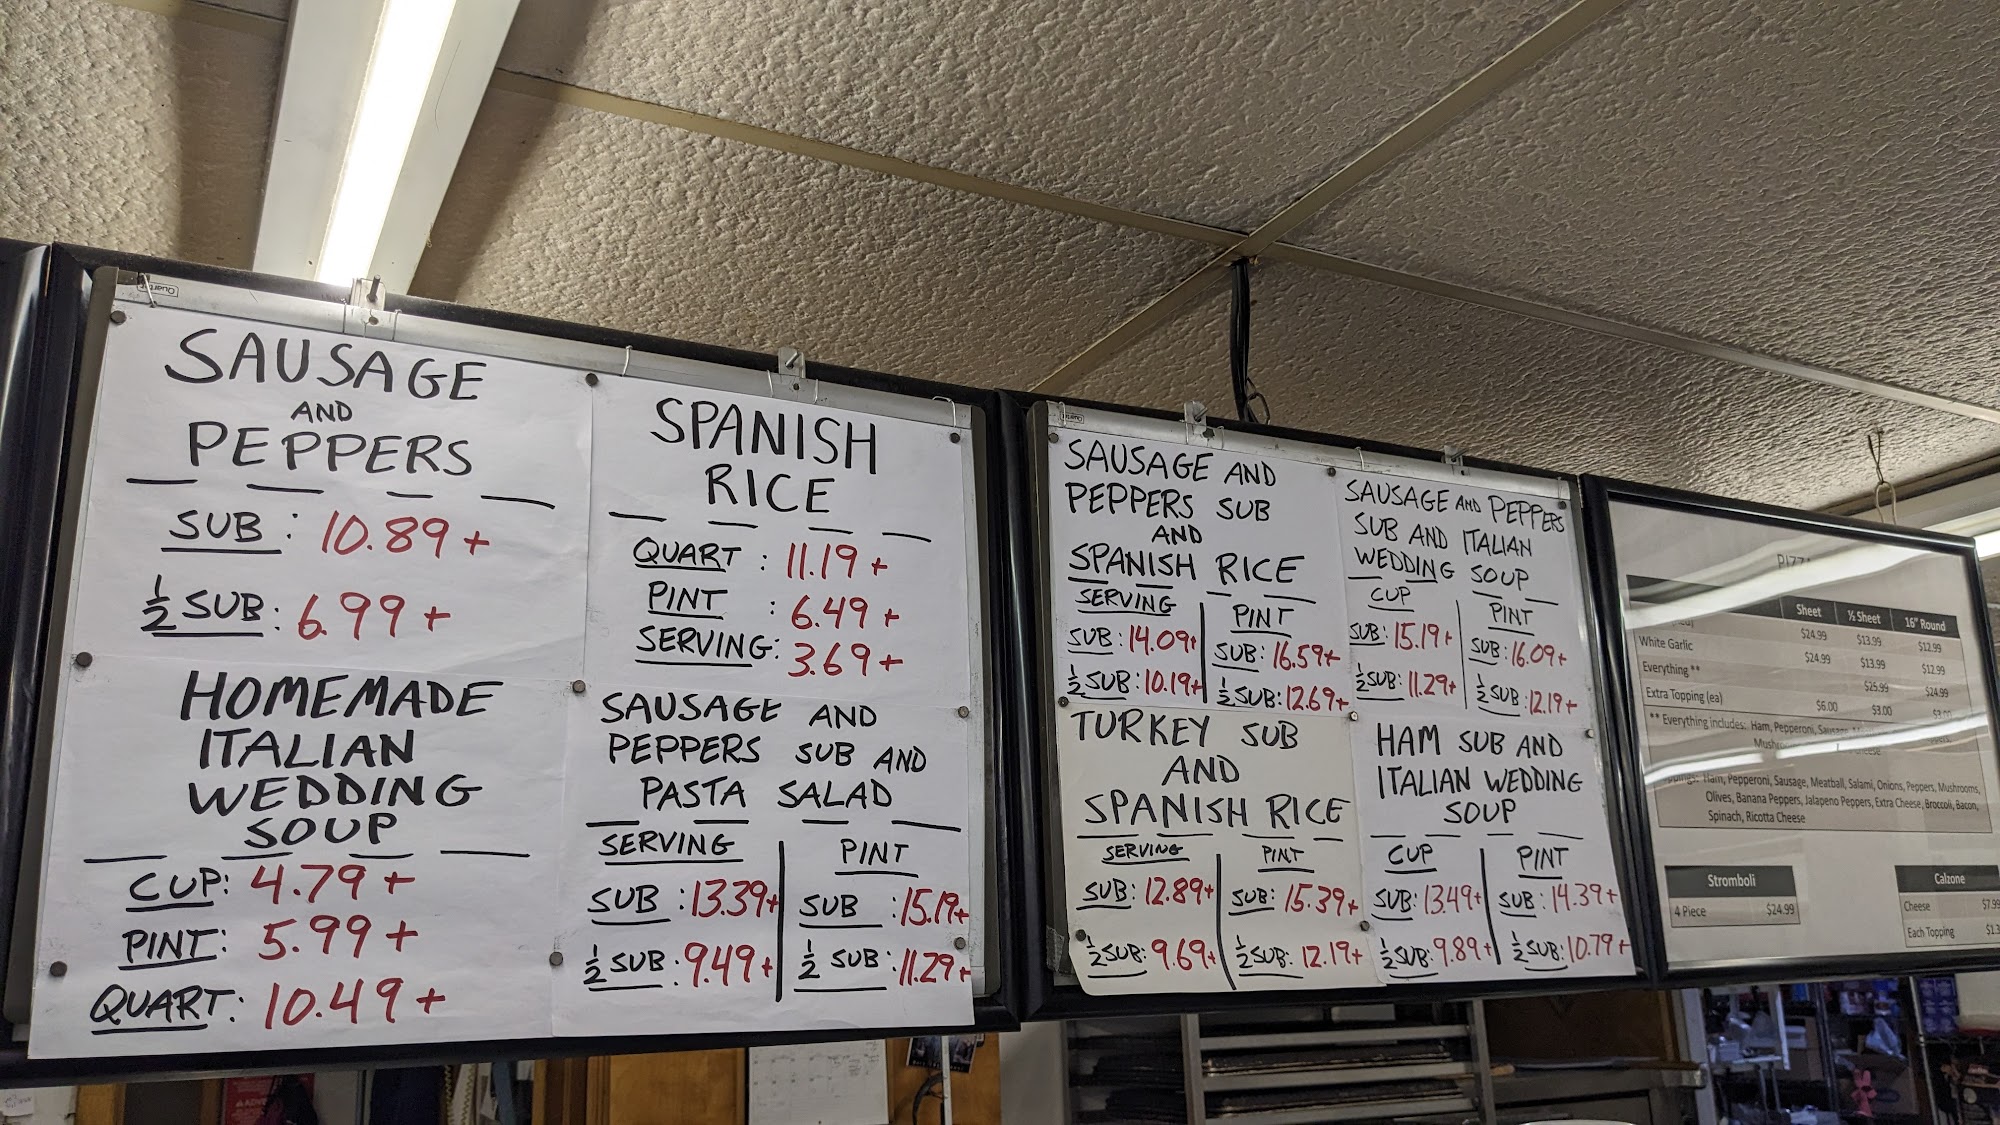 SAUSAGE
AND
PEPPERS
SUB: 10.89+
½ SUB: 6.99+
HOMEMADE
ITALIAN
WEDDING
SOUP
CUP: 4.79+
PINT: 5.99+
QUART: 10.49+
SPANISH
RICE
QUART: 11.19+
PINT: 6.49+
SERVING: 3.69+
SAUSAGE AND
PEPPERS SUB AND
PASTA SALAD
SERVING
SUB: 13.39+
½ SUB: 9.49+
PINT
SUB: 15.19+
½ SUB: 11.29+
SAUSAGE AND
PEPPERS SUB
AND
SPANISH RICE
SERVING
SUB: 14.09+
½ SUB: 10.19+
PINT
SUB: 16.59+
½ SUB: 12.69+
SAUSAGE AND PEPPERS
SUB AND ITALIAN
WEDDING SOUP
CUP
SUB: 15.19+
½ SUB: 11.29+
PINT
SUB: 16.09+
½ SUB: 12.19+
TURKEY SUB
AND
SPANISH RICE
SERVING
SUB: 12.89+
½ SUB: 9.69+
PINT
SUB: 15.39+
½ SUB: 12.19+
HAM SUB AND
ITALIAN WEDDING
SOUP
CUP
SUB: 13.49+
½ SUB: 9.89+
PINT
SUB: 14.39+
½ SUB: 10.79+
Sheet ½ Sheet 16" Round
$24.99 $13.99 $12.99
White Garlic $24.99 $13.99 $12.99
Everything ** $25.99 $24.99
Extra Topping (ea) $6.00 $3.00
** Everything includes: Ham, Pepperoni,
Ham, Pepperoni, Sausage, Meatball, Salami, Onions, Peppers, Mushrooms,
Olives, Banana Peppers, Jalapeno Peppers, Extra Cheese, Broccoli, Bacon,
Spinach, Ricotta Cheese
Stromboli
4 Piece $24.99
Calzone
Cheese
Each Topping